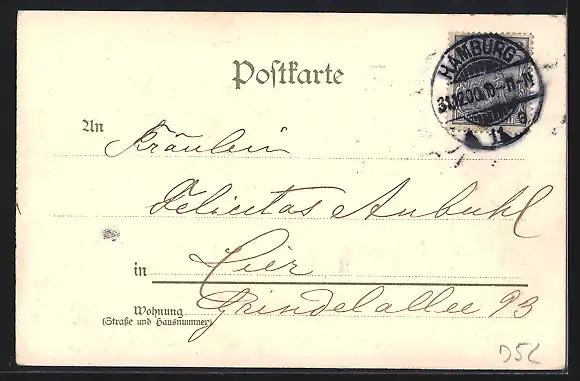 Postkarte
HAMBURG
31.12.00.10-11N
11
An Fräulein
Felicitas Anbuhl
in Hier
Wohnung Grindelallee 93
(Straße und Hausnummer)
D5L